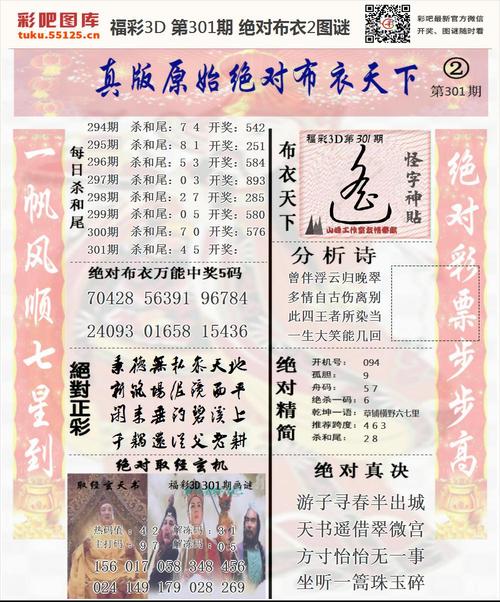 彩吧图库
tuku.55125.cn
福彩3D 第301期 绝对布衣2图谜
彩吧最新官方微信
开奖、图谜随时看
真版原始绝对布衣天下
②
第301期
一帆风顺七星到
每日杀和尾
294期 杀和尾: 7 4 开奖: 542
295期 杀和尾: 8 1 开奖: 251
296期 杀和尾: 5 3 开奖: 584
297期 杀和尾: 0 3 开奖: 893
298期 杀和尾: 2 7 开奖: 285
299期 杀和尾: 0 5 开奖: 580
300期 杀和尾: 7 0 开奖: 576
301期 杀和尾: 4 5 开奖:
绝对布衣万能中奖5码
70428 56391 96784
24093 01658 15436
絕對正彩
绝对取经玄机
取经玄天书
福彩3D301期画谜
热码值: 4 2 解冻码: 3 1
主打码: 9 7 解冻码: 0 5
156 017 058 348 456
024 149 179 028 269
布衣天下
福彩3D第301期
怪字神贴
山峰工作室激情奉献
分析诗
曾伴浮云归晚翠
多情自古伤离别
此四王者所染当
一生大笑能几回
绝对精简
开机号: 094
孤胆: 9
舟码: 5 7
绝杀一码: 6
乾坤一语: 草铺横野六七里
推荐跨度: 4 6 3
杀和尾: 2 8
绝对真决
游子寻春半出城
天书遥借翠微宫
方寸怡怡无一事
坐听一篙珠玉碎
绝对彩票步步高